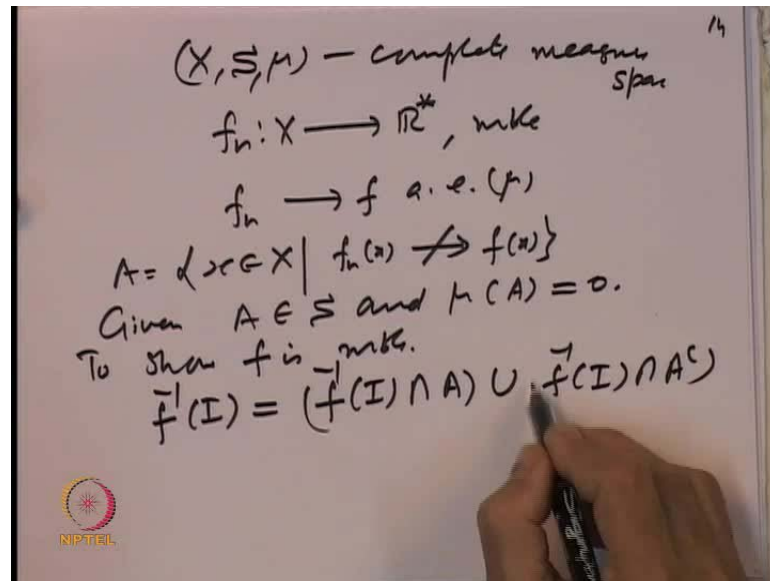 14
(X, S, μ) – complete measure space
fₙ : X ⟶ ℝ*, mble
fₙ ⟶ f a.e. (μ)
A = {x ∈ X | fₙ(x) ↛ f(x)}
Given A ∈ S and μ(A) = 0.
To show f is mble.
f⁻¹(I) = (f⁻¹(I) ∩ A) ∪ f⁻¹(I) ∩ Aᶜ)
NPTEL